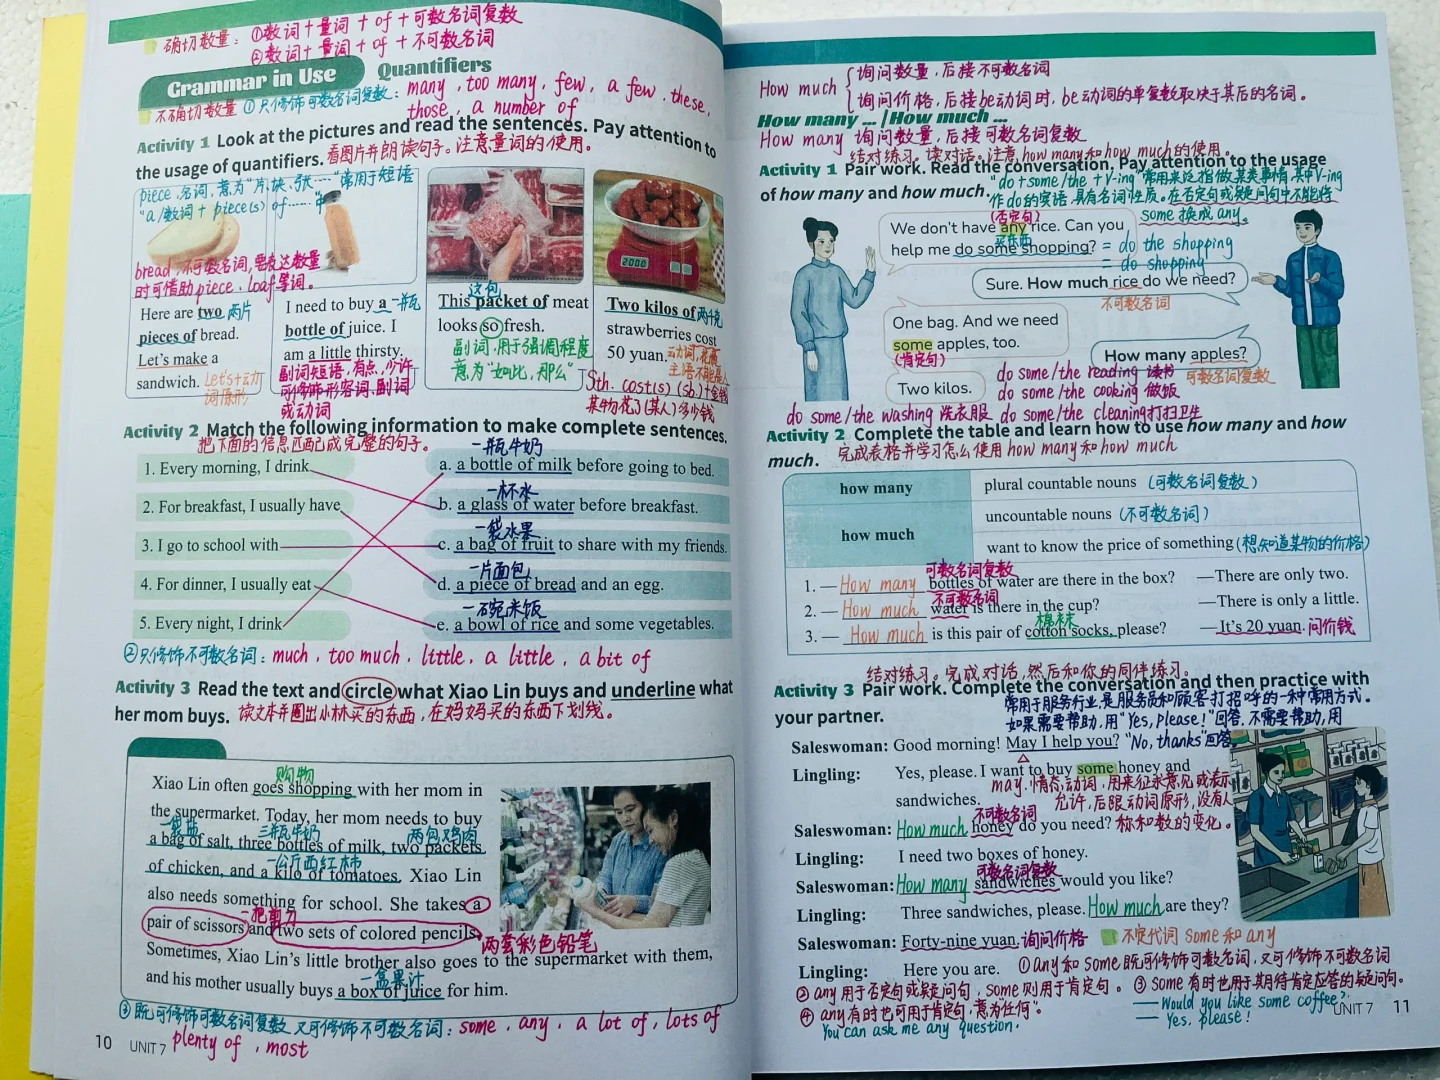 确切数量：①数词+量词+of+可数名词复数
②数词+量词+of+不可数名词
Grammar in Use Quantifiers
不确切数量 ①只修饰可数名词复数：many、too many、few、a few、these、
those、a number of
Activity 1 Look at the pictures and read the sentences. Pay attention to
the usage of quantifiers. 看图片并朗读句子。注意量词的使用。
piece 名词，意为“片、块、张……”常用于短语
“a/数词+piece(s) of……”中
bread，不可数名词，要表达数量
时可借助piece、loaf等词。
2000
Here are two 两片
pieces of bread.
Let's make a
sandwich. Let's+动
词原形
I need to buy a 一瓶
bottle of juice. I
am a little thirsty.
副词短语，有点，少许
可修饰形容词、副词
或动词
这包
This packet of meat
looks so fresh.
副词，用于强调程度
意为“如此，那么”
Two kilos of 两千克
strawberries cost
50 yuan. 动词，花费
主语不能是人
Sth. cost(s) (sb.)+金钱
某物花了(某人)多少钱
Activity 2 Match the following information to make complete sentences.
把下面的信息匹配成完整的句子。
一瓶牛奶
1. Every morning, I drink a. a bottle of milk before going to bed.
一杯水
2. For breakfast, I usually have b. a glass of water before breakfast.
一袋水果
3. I go to school with c. a bag of fruit to share with my friends.
一片面包
4. For dinner, I usually eat d. a piece of bread and an egg.
一碗米饭
5. Every night, I drink e. a bowl of rice and some vegetables.
②只修饰不可数名词：much、too much、little、a little、a bit of
Activity 3 Read the text and circle what Xiao Lin buys and underline what
her mom buys. 读文本并圈出小林买的东西，在妈妈买的东西下划线。
购物
Xiao Lin often goes shopping with her mom in
the supermarket. Today, her mom needs to buy
一袋盐 三瓶牛奶 两包鸡肉
a bag of salt, three bottles of milk, two packets
一公斤西红柿
of chicken, and a kilo of tomatoes. Xiao Lin
also needs something for school. She takes a
一把剪刀
pair of scissors and two sets of colored pencils.
两套彩色铅笔
Sometimes, Xiao Lin's little brother also goes to the supermarket with them,
一盒果汁
and his mother usually buys a box of juice for him.
③既可修饰可数名词复数 又可修饰不可数名词：some、any、a lot of、lots of
plenty of、most
10 UNIT 7
How much 询问数量，后接不可数名词
询问价格，后接be动词时，be动词的单复数取决于其后的名词。
How many ... / How much ...
How many 询问数量，后接可数名词复数
结对练习。读对话。注意how many和how much的使用。
Activity 1 Pair work. Read the conversation. Pay attention to the usage
of how many and how much.
“do+some/the+V-ing”常用来泛指做某类事情，其中V-ing
作do的宾语，具有名词性质。在否定句或疑问句中不能将
some换成any。
(否定句)
We don't have any rice. Can you
买东西
help me do some shopping? = do the shopping
= do shopping
Sure. How much rice do we need?
不可数名词
One bag. And we need
some apples, too.
(肯定句)
How many apples?
可数名词复数
Two kilos.
do some/the reading 读书
do some/the cooking 做饭
do some/the washing 洗衣服 do some/the cleaning 打扫卫生
Activity 2 Complete the table and learn how to use how many and how
much. 完成表格并学习怎么使用how many和how much
how many plural countable nouns (可数名词复数)
how much uncountable nouns (不可数名词)
want to know the price of something (想知道某物的价格)
可数名词复数
1. — How many bottles of water are there in the box? —There are only two.
不可数名词
2. — How much water is there in the cup? —There is only a little.
棉袜
3. — How much is this pair of cotton socks, please? —It's 20 yuan. 问价钱
结对练习。完成对话，然后和你的同伴练习。
Activity 3 Pair work. Complete the conversation and then practice with
your partner.
常用于服务行业，是服务员和顾客打招呼的一种常用方式。
如果需要帮助，用“Yes, please!”回答，不需要帮助，用
Saleswoman: Good morning! May I help you? “No, thanks”回答
Lingling: Yes, please. I want to buy some honey and
sandwiches.
may，情态动词，用来征求意见或表示
允许，后跟动词原形，没有人
称和数的变化。
不可数名词
Saleswoman: How much honey do you need?
Lingling: I need two boxes of honey.
可数名词复数
Saleswoman: How many sandwiches would you like?
Lingling: Three sandwiches, please. How much are they?
Saleswoman: Forty-nine yuan. 询问价格
不定代词 some 和 any
Lingling: Here you are.
①any和some既可修饰可数名词，又可修饰不可数名词
②any用于否定句或疑问句，some则用于肯定句。③some有时也用于期待肯定应答的疑问句。
— Would you like some coffee?
— Yes, please!
④any有时也可用于肯定句，意为“任何”。
You can ask me any question.
UNIT 7 11